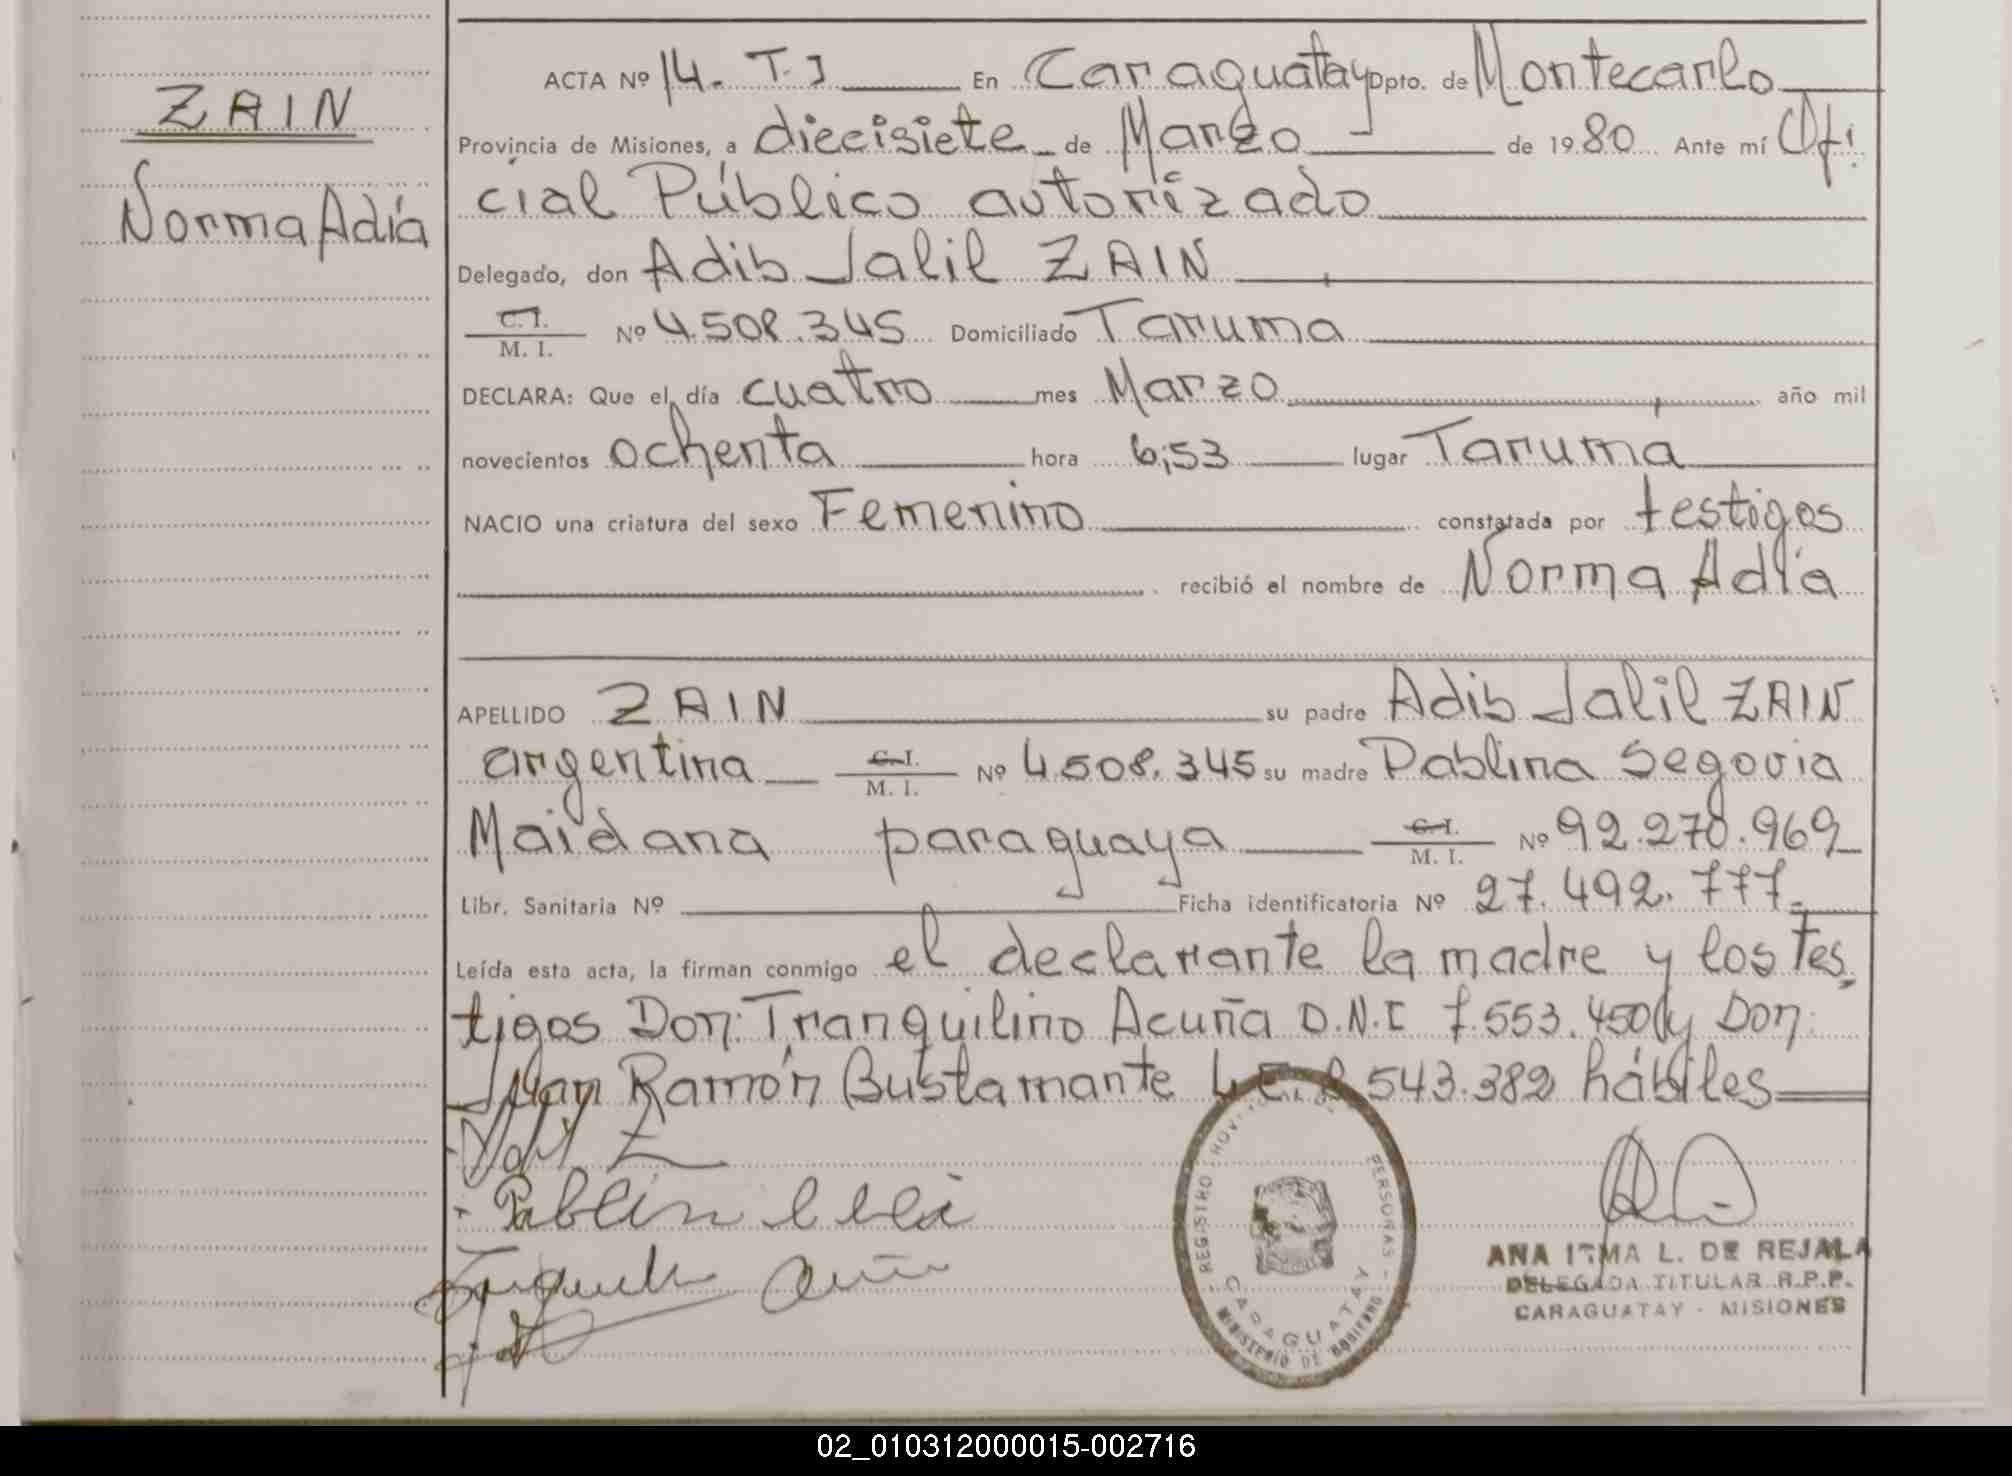 ZAIN
Norma Adía
ACTA Nº 14. T. I En Caraguatay Dpto. de Montecarlo
Provincia de Misiones, a diecisiete de Marzo de 1980 Ante mí Ofi
cial Público autorizado
Delegado, don Adib Jalil ZAIN
C. I. / M. I. Nº 4.508.345 Domiciliado Taruma
DECLARA: Que el día cuatro mes Marzo año mil
novecientos ochenta hora 6,53 lugar Tarumá
NACIO una criatura del sexo Femenino constatada por testigos
recibió el nombre de Norma Adía
APELLIDO ZAIN su padre Adib Jalil ZAIN
argentina C. I. / M. I. Nº 4.508.345 su madre Pablina Segovia
Maidana paraguaya C. I. / M. I. Nº 92.270.969
Libr. Sanitaria Nº Ficha identificatoria Nº 27.492.777
Leída esta acta, la firman conmigo el declarante la madre y los tes
tigos Don: Tranquilino Acuña D.N.I 7.553.450 y Don
Juan Ramón Bustamante L.E. 8.543.382 hábiles
REGISTRO PERSONAS
CARAGUATAY
MINISTERIO DE GOBIERNO
ANA IRMA L. DE REJALA
DELEGADA TITULAR R.P.P.
CARAGUATAY - MISIONES
02_010312000015-002716